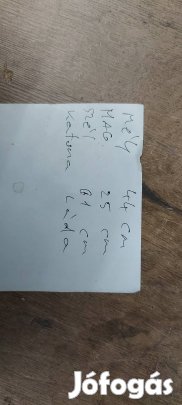 Mély 44 cm
MAG. 25 cm
Szél 81 cm
Katona Láda
Jófogás